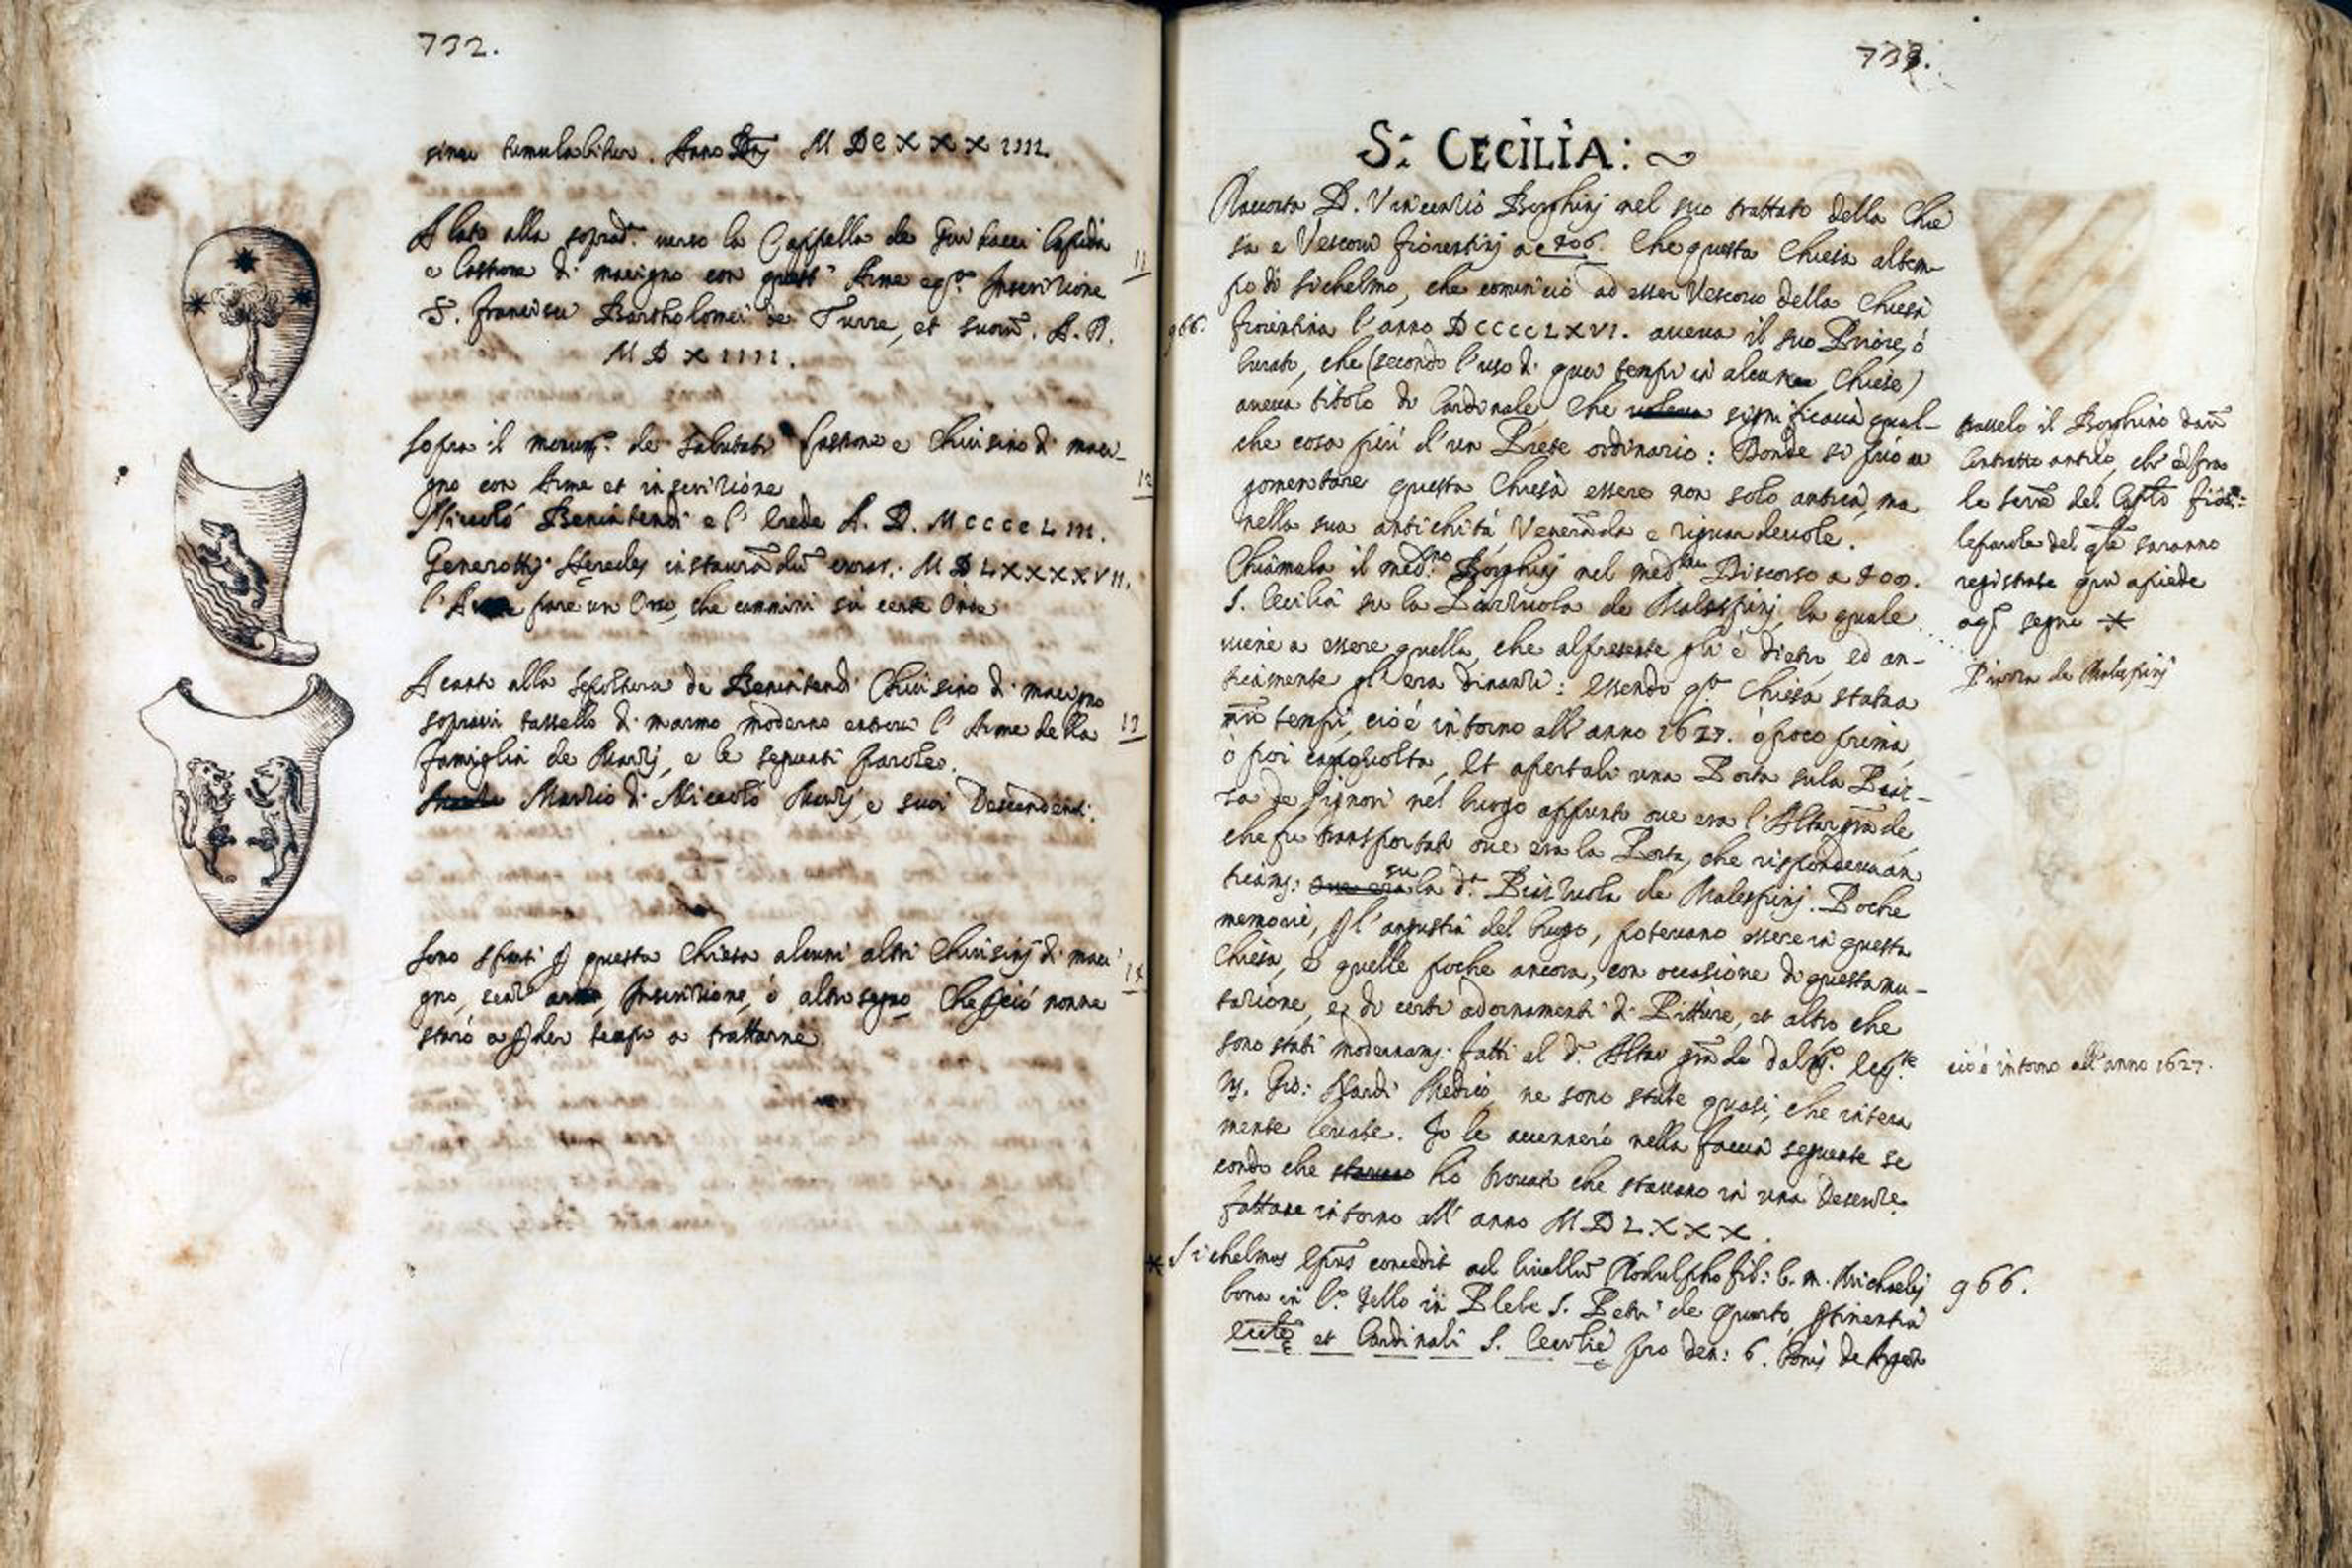 732.
sinu tumulabitur. Anno Dnj M D C X X X IIII.
A lato alla soprad.ᵃ verso la Cappella de Guidacci lapida
e lastrone di macigno con quest' Arme e q.ᵗᵃ Inscrizione
S. Francisci Bartholomei de Turre, et suorũ. A. D.
M D X IIII.
11
Sopra il monum.ᵗᵒ de Salutati lastrone e Chiusino di maci-
gno con Arme et inscrizione
12
Niccolò Benintendi e l' herede A. D. M CCCC L III.
Generottj Heredes M D L X X X X VII.
l' Arme pare un Orso, che cammini su certe Onde
Acanto alla sepoltura de Benintendi Chiusino di macigno
sopravi tassello di marmo moderno entrovi l' Arme della
13
famiglia de, e le seguenti parole.
Marzio di Niccolò e suoi Descendenti.
Sono sparsi p questa Chiesa alcuni altri Chiusinj di maci-
14
gno, senz' arme, Inscrizione, ò altro segno che p ciò non ne
starò a pder tempo a trattarne.
733.
S.ᵃ CECILIA:
Racconta D. Vincenzio Borghinj nel suo trattato della Chie
sa e Vescovi fiorentinj a c 406. Che questa Chiesa al tem-
po di Sichelmo, che cominciò ad esser Vescovo della Chiesa
966.
fiorentina l' anno D CCCC L X VI. aveva il suo Priore, ò
Curato, che (secondo l' uso di quei tempi in alcune Chiese)
aveva titolo di Cardinale che significava qual-
che cosa più d' un Prete ordinario: Donde si può ar
gomentare questa Chiesa essere non solo antica, ma
nella sua antichità Veneranda e riguardevole.
Chiamala il med.ᵐᵒ Borghinj nel med.ᵐᵒ Discorso a 400.
S. Cecilia su la Piazzuola de Malespinj, la quale
viene a essere quella, che al presente gli è dietro, ed an-
ticamente gl' era dinanzi: essendo q.ᵗᵃ Chiesa stata a
nri tempi, cioè intorno all' anno 1627. ò poco prima,
ò poi capovolta, et apertali una Porta sula Piaz-
za de Signori nel luogo appunto ove era l' Altar grãde,
che fu transportato ove era la Porta, che rispondeva an
ticamᵗᵉ: su la d.ᵃ Piazzuola de Malespinj. Poche
memorie, p l' angustia del luogo, potevano essere in questa
Chiesa, e quelle poche ancora, con occasione di questa mu-
tazione, e di certi adornamenti di Pitture, et altro che
sono stati modernamᵗᵉ: fatti al d.ᵒ Altar grãde dal
M. Gio: Nardi Medico, ne sono state quasi, che intera
mente levate. Io le accennerò nella faccia seguente se
condo che ho trovato che stavano in una Descriz.ᵉ
fattane intorno all' anno M D L X X X.
* Sichelmus Epũs concedit ad livellũ Rodulpho fil: b. m. Michaelis
bona in l.ᵒ Tello in Plebe S. Petri de Quarto, ptinentia
et Cardinali S. Cecilie pro den: 6. bonis de Argento
trasselo il Borghino da un
Contratto antico, ch' è fra
le parole del qle saranno
registrate qui a piede
segno *
Piazza de Malespinj
cioè intorno all' anno 1627.
966.